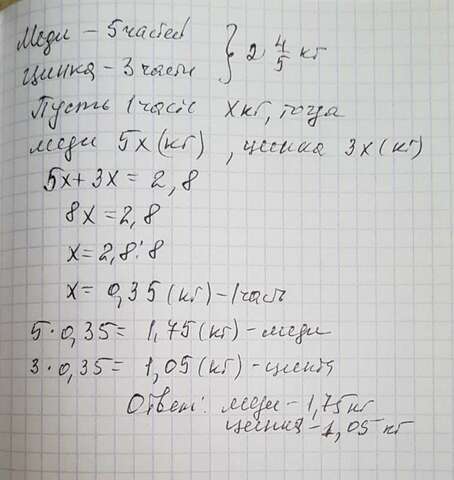 Меди - 5 частей } 2 4/5 кг
Цинка - 3 части
Пусть 1 часть x кг, тогда
меди 5x (кг), цинка 3x (кг)
5x + 3x = 2,8
8x = 2,8
x = 2,8 : 8
x = 0,35 (кг) - 1 часть
5 · 0,35 = 1,75 (кг) - меди
3 · 0,35 = 1,05 (кг) - цинка
Ответ: меди - 1,75 кг
цинка - 1,05 кг